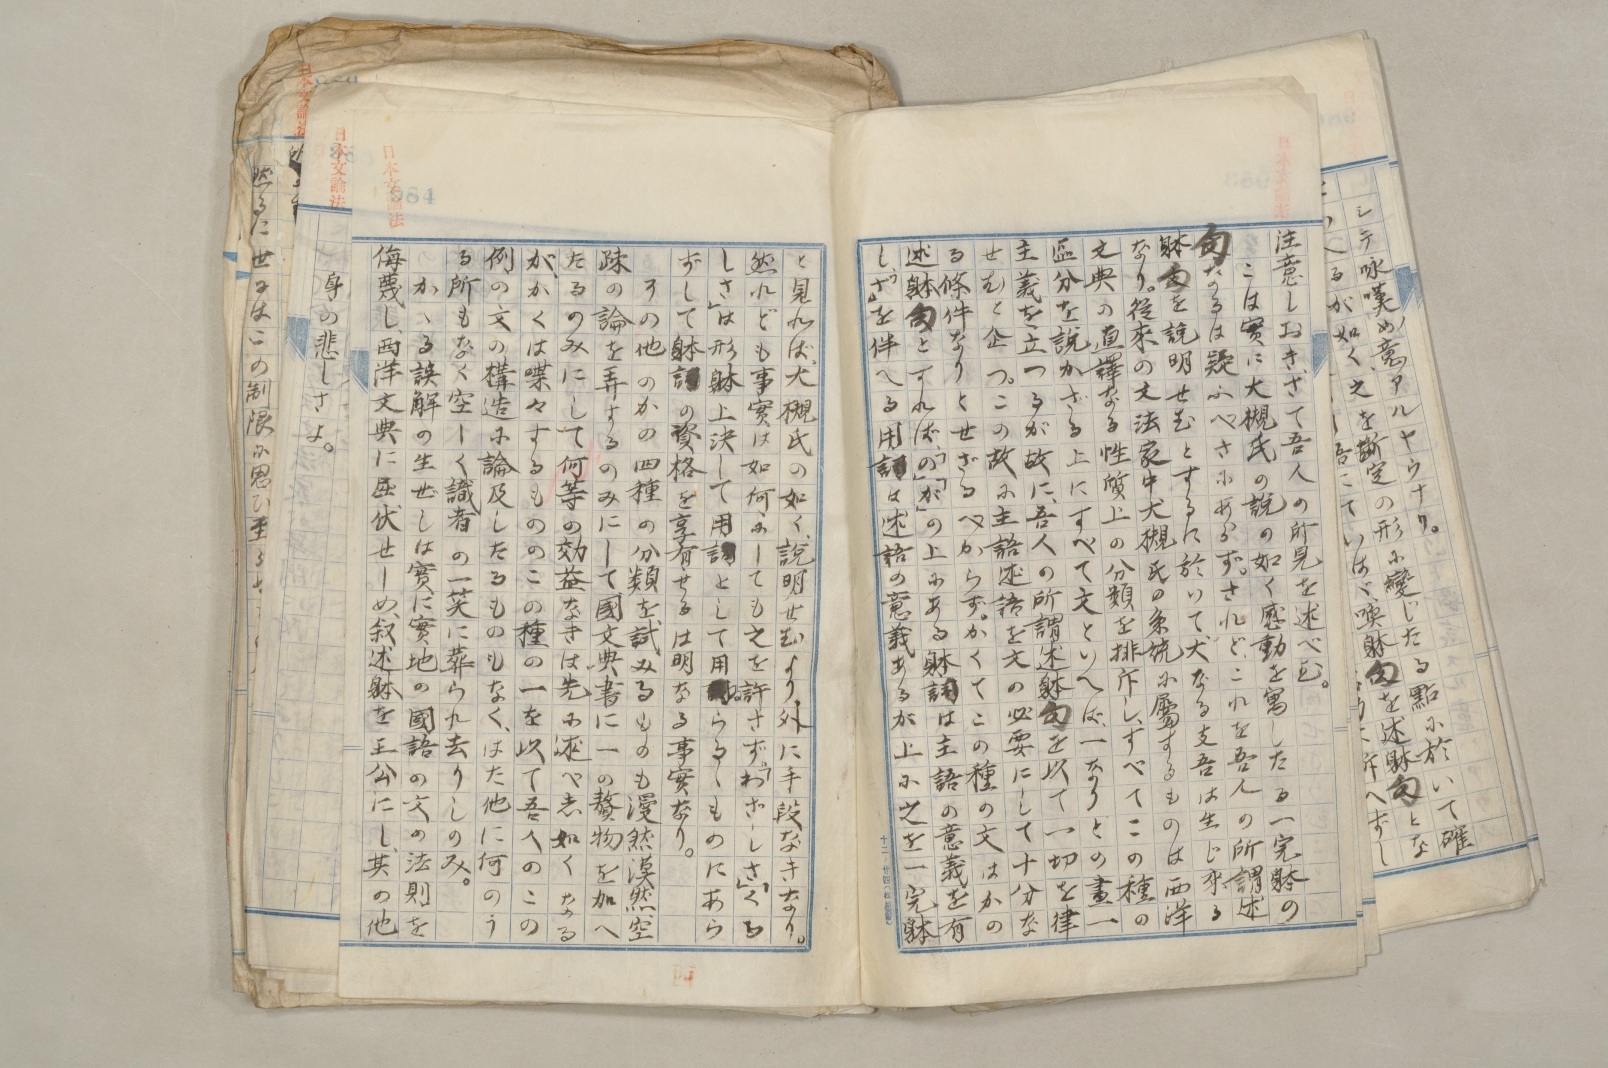 シテ咏嘆の意アルヤウナリ。
断定の形に變じたる點に於いて確
喚躰句を述躰句とな
注意しおき、さて吾人の所見を述べむ。
こは實に大槻氏の説の如く感動を寓したる一完躰の
句なるは疑ふべきにあらず。されど、これを吾人の所謂述
躰句を説明せむとするに於いて大なる支吾は生じ來る
なり。從來の文法家中大槻氏の系統に屬するものは西洋
文典の直譯なる性質上の分類を排斥し、すべてこの種の
區分を説かざる上にすべて文といへば、一なりとの畫一
主義を立つるが故に、吾人の所謂述躰句を以て一切を律
せむと企つ。この故に主語述語を文の必要にして十分な
る條件なりとせざるべからず。かくてこの種の文はかの
述躰句とすれば、「の」「が」の上にある躰詞は主語の意義を有
し、「さ」を伴へる用詞は述語の意義あるが上に之を一完躰
と見れば、大槻氏の如く、説明せむより外に手段なきなり。
然れども事實は如何にしても之を許さず。「わざしさ」「くる
しさ」は形躰上決して用詞として用ゐらるゝものにあら
ずして躰詞の資格を享有せるは明なる事實なり。
その他のかの四種の分類を試みるものも漫然漠然空
疎の論を弄するのみにして國文典書に一の贅物を加へ
たるのみにして何等の効益なきは先に述べし如くなる
がかくは喋々するもののこの種の一を以て吾人のこの
例の文の構造に論及したるものもなく、はた他に何のう
る所もなく空しく識者の一笑に葬られ去りしのみ。
かゝる誤解の生ぜしは實に實地の國語の文の法則を
侮蔑し、西洋文典に屈伏せしめ、叙述躰を王公にし、其の他
身の悲しさよ。
然るに世にはこの制限に思ひ至
984
日本文論法
日本文論法